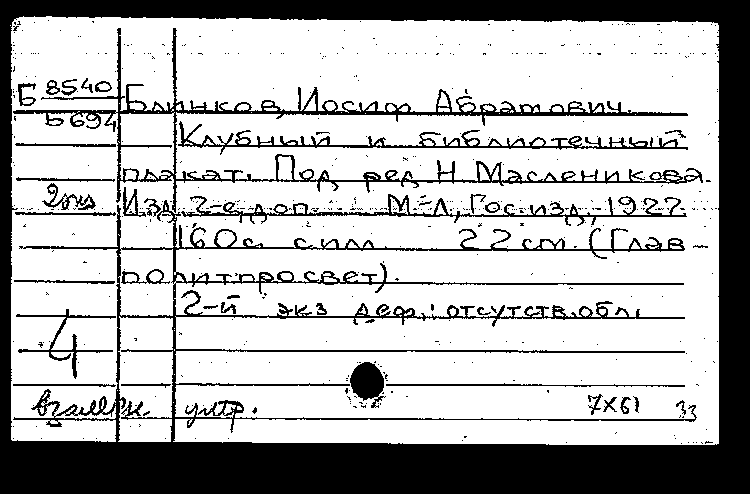 Б 8540
Б694
Блинков, Иосиф Абрамович.
Клубный и библиотечный
плакат. Под ред Н Масленикова.
2 экз
Изд 2-е, доп. М-Л, Госизд, 1927.
160с. с илл. 22 cm. (Глав-
политпросвет).
2-й экз деф.: отсутств. обл.
4
взамен утр.
7X61 33